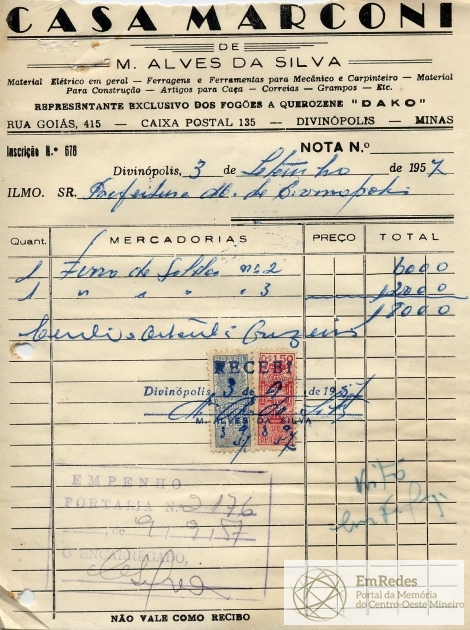 CASA MARCONI
DE
M. ALVES DA SILVA
Material Elétrico em geral — Ferragens e Ferramentas para Mecânico e Carpinteiro — Material
Para Construção — Artigos para Caça — Correias — Grampos — Etc.
REPRESENTANTE EXCLUSIVO DOS FOGÕES A QUEROZENE "DAKO"
RUA GOIÁS, 415 — CAIXA POSTAL 135 — DIVINÓPOLIS — MINAS
Inscrição N.º 678
NOTA N.º
Divinópolis, 3 de Setembro de 1957
ILMO. SR. Prefeitura M. de Divinopolis
Quant. MERCADORIAS PREÇO TOTAL
1 Ferro de Soldar nº 2 6000
1 " " " " 3 12000
18000
Cento e Oitenta Cruzeiros
BRASIL
1,50
RECEBI
Divinópolis, 3 de 9 de 1957
M. ALVES DA SILVA
3 9 57
3 9 57
EMPENHO
PORTARIA N. 2176
9, 9, 57
O ENCARREGADO,
Visto
EmRedes
Portal da Memória
do Centro-Oeste Mineiro
NÃO VALE COMO RECIBO